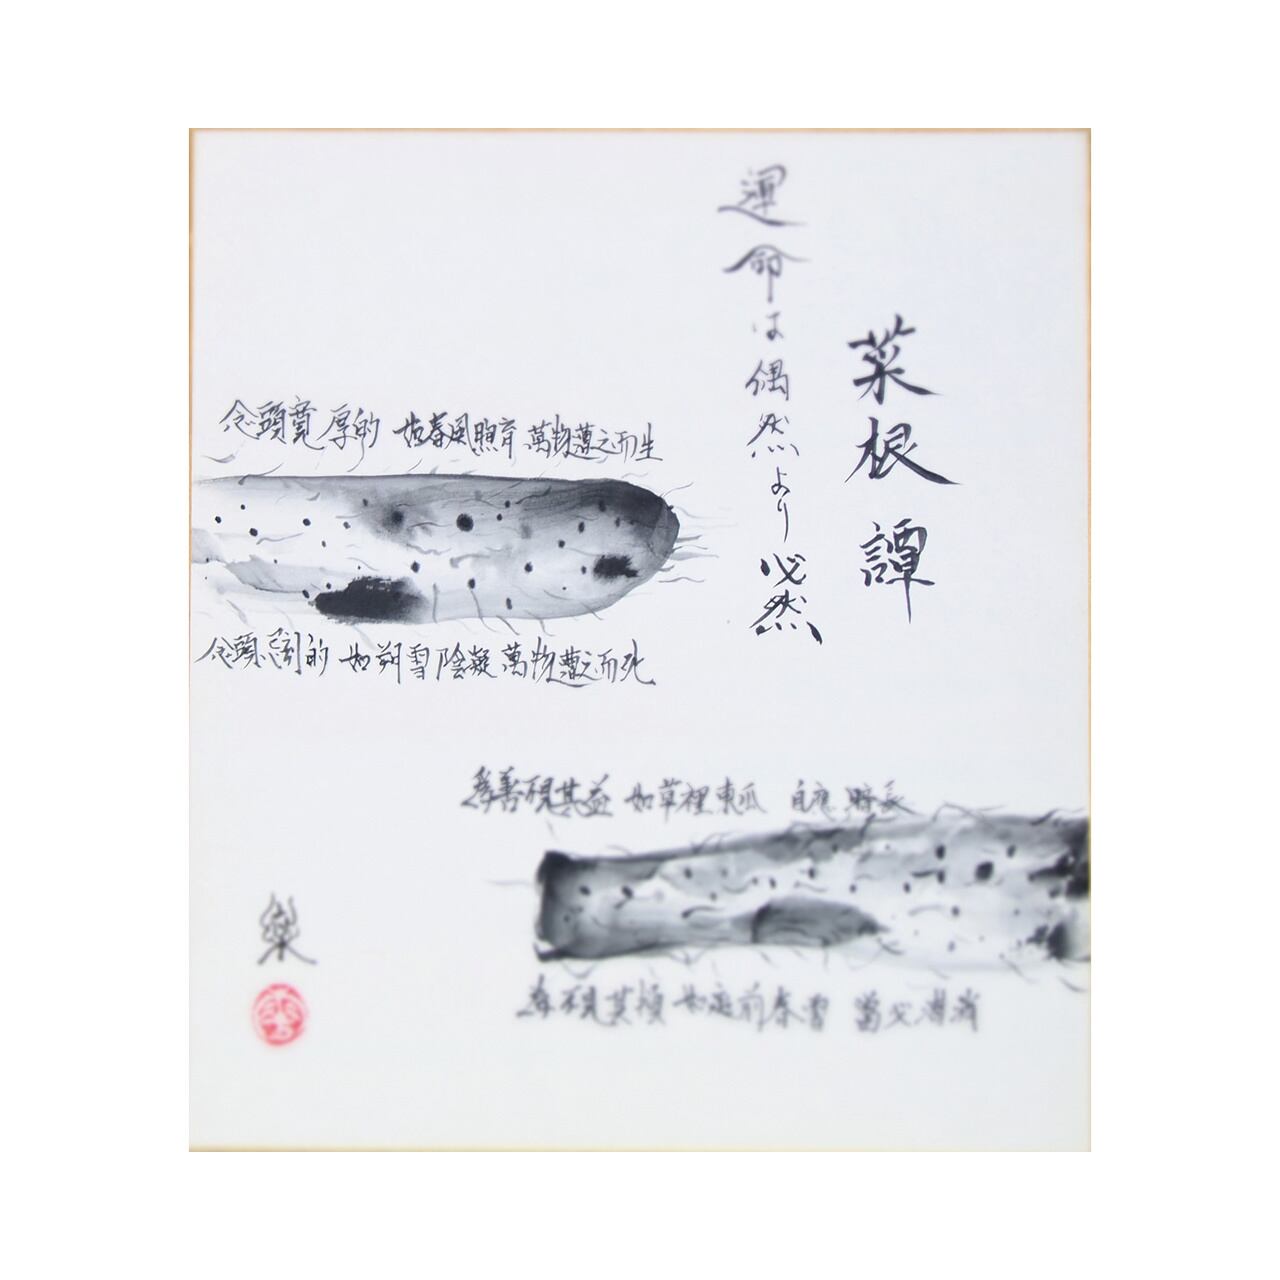 菜根譚
運命は偶然より必然
念頭寛厚的 如春風煦育 萬物遭之而生
念頭忌刻的 如朔雪陰凝 萬物遭之而死
為善不見其益 如草裡東瓜 自應暗長
為不見其損 如庭前春雪 當必潜消
樂